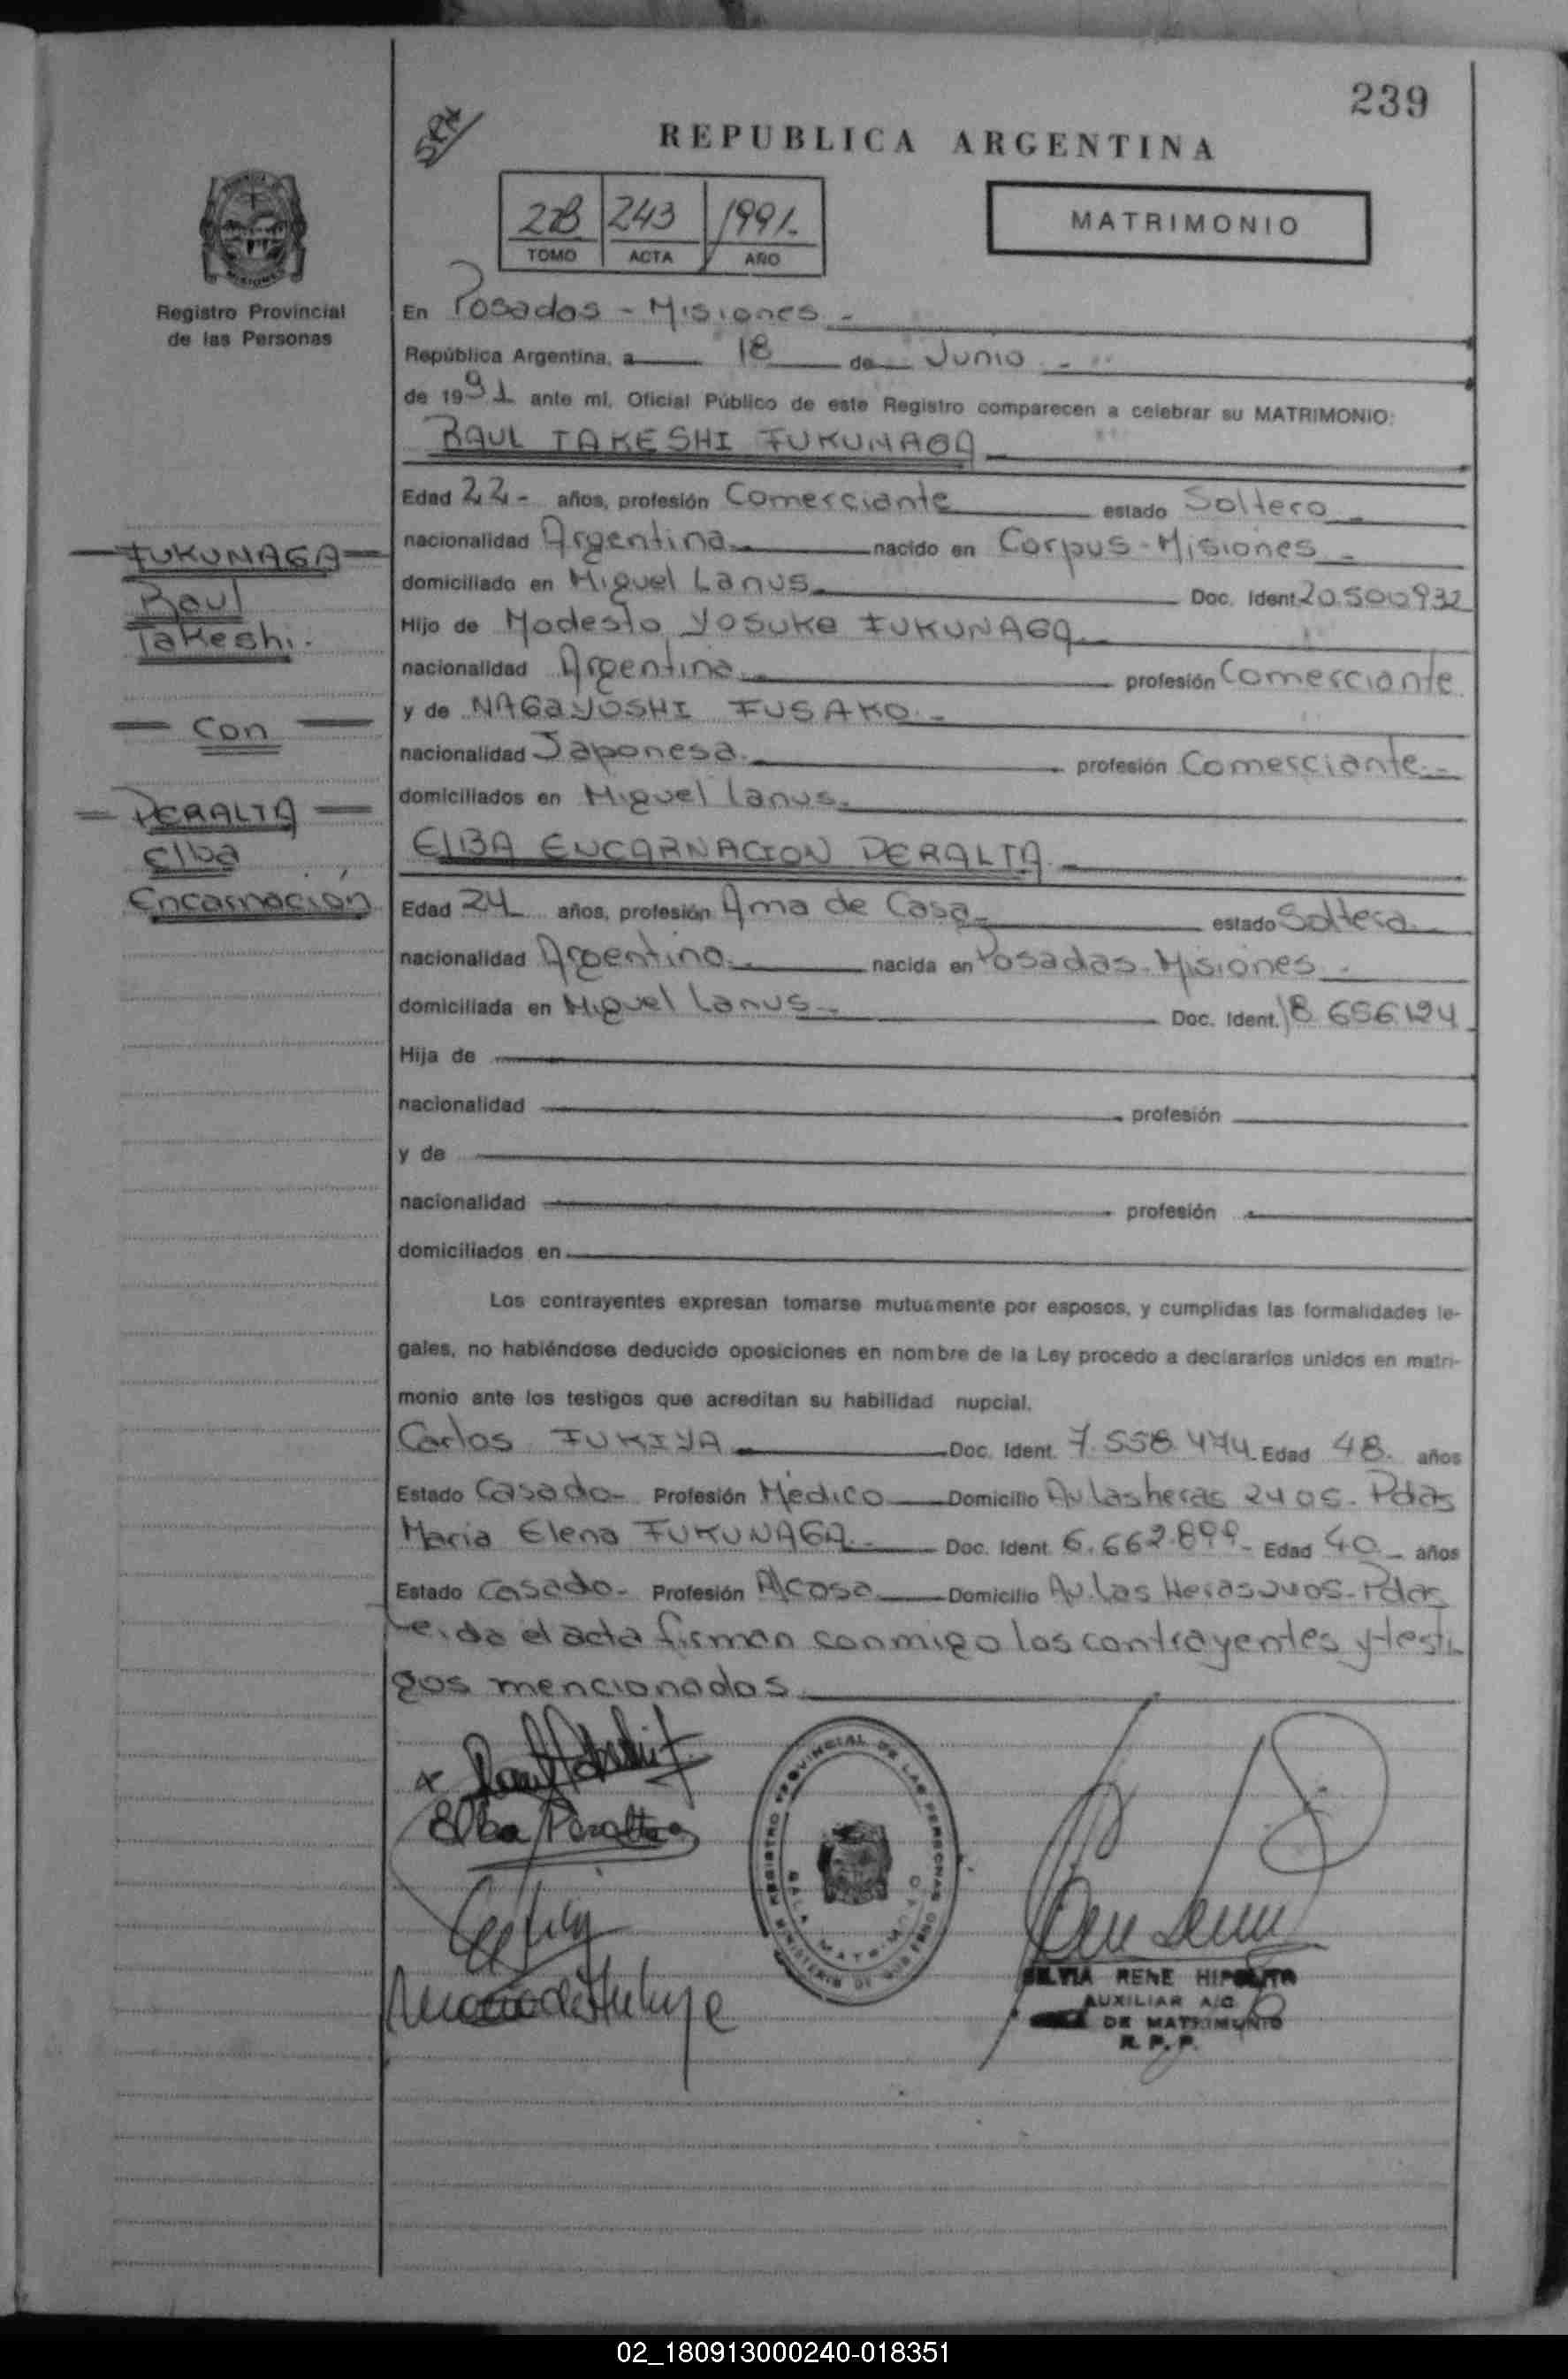 239
REPUBLICA ARGENTINA
243 1991.
TOMO ACTA AÑO
MATRIMONIO
Registro Provincial
de las Personas
En Posadas - Misiones -
República Argentina, a 18 de Junio -
de 1991 ante mí, Oficial Público de este Registro comparecen a celebrar su MATRIMONIO:
RAUL TAKESHI FUKUNAGA
Edad 22 - años, profesión Comerciante estado Soltero -
nacionalidad Argentina nacido en Corpus - Misiones -
domiciliado en Miguel Lanus Doc. Ident. 20.500932
Hijo de Modesto Yosuke FUKUNAGA
nacionalidad Argentina profesión Comerciante
y de NAGAYOSHI FUSAKO -
nacionalidad Japonesa profesión Comerciante -
domiciliados en Miguel Lanus.
FUKUNAGA
Raul
Takeshi.
Con
PERALTA
Elba
Encarnación
ELBA ENCARNACION PERALTA
Edad 24 años, profesión Ama de Casa estado Soltera
nacionalidad Argentina nacida en Posadas - Misiones -
domiciliada en Miguel Lanus Doc. Ident. 18.656.124
Hija de
nacionalidad profesión
y de
nacionalidad profesión
domiciliados en
Los contrayentes expresan tomarse mutuamente por esposos, y cumplidas las formalidades le-
gales, no habiéndose deducido oposiciones en nombre de la Ley procedo a declararlos unidos en matri-
monio ante los testigos que acreditan su habilidad nupcial.
Carlos FUKIYA Doc. Ident. 7.558.474 Edad 48. años
Estado Casado - Profesión Médico Domicilio Av Las heras 2405 - Pdas
Maria Elena FUKUNAGA Doc. Ident. 6.662.899 - Edad 40 - años
Estado Casado - Profesión A/casa Domicilio Av. Las Heras 2405 - Pdas
Leida el acta firman conmigo los contrayentes y testi
gos mencionados
Elba Peralta
REGISTRO PROVINCIAL DE LAS PERSONAS
MINISTERIO DE GOBIERNO
SALA MATRIMONIO
SILVIA RENE HIPOLITO
AUXILIAR A/C
DE MATRIMONIO
R. P. P.
02_180913000240-018351